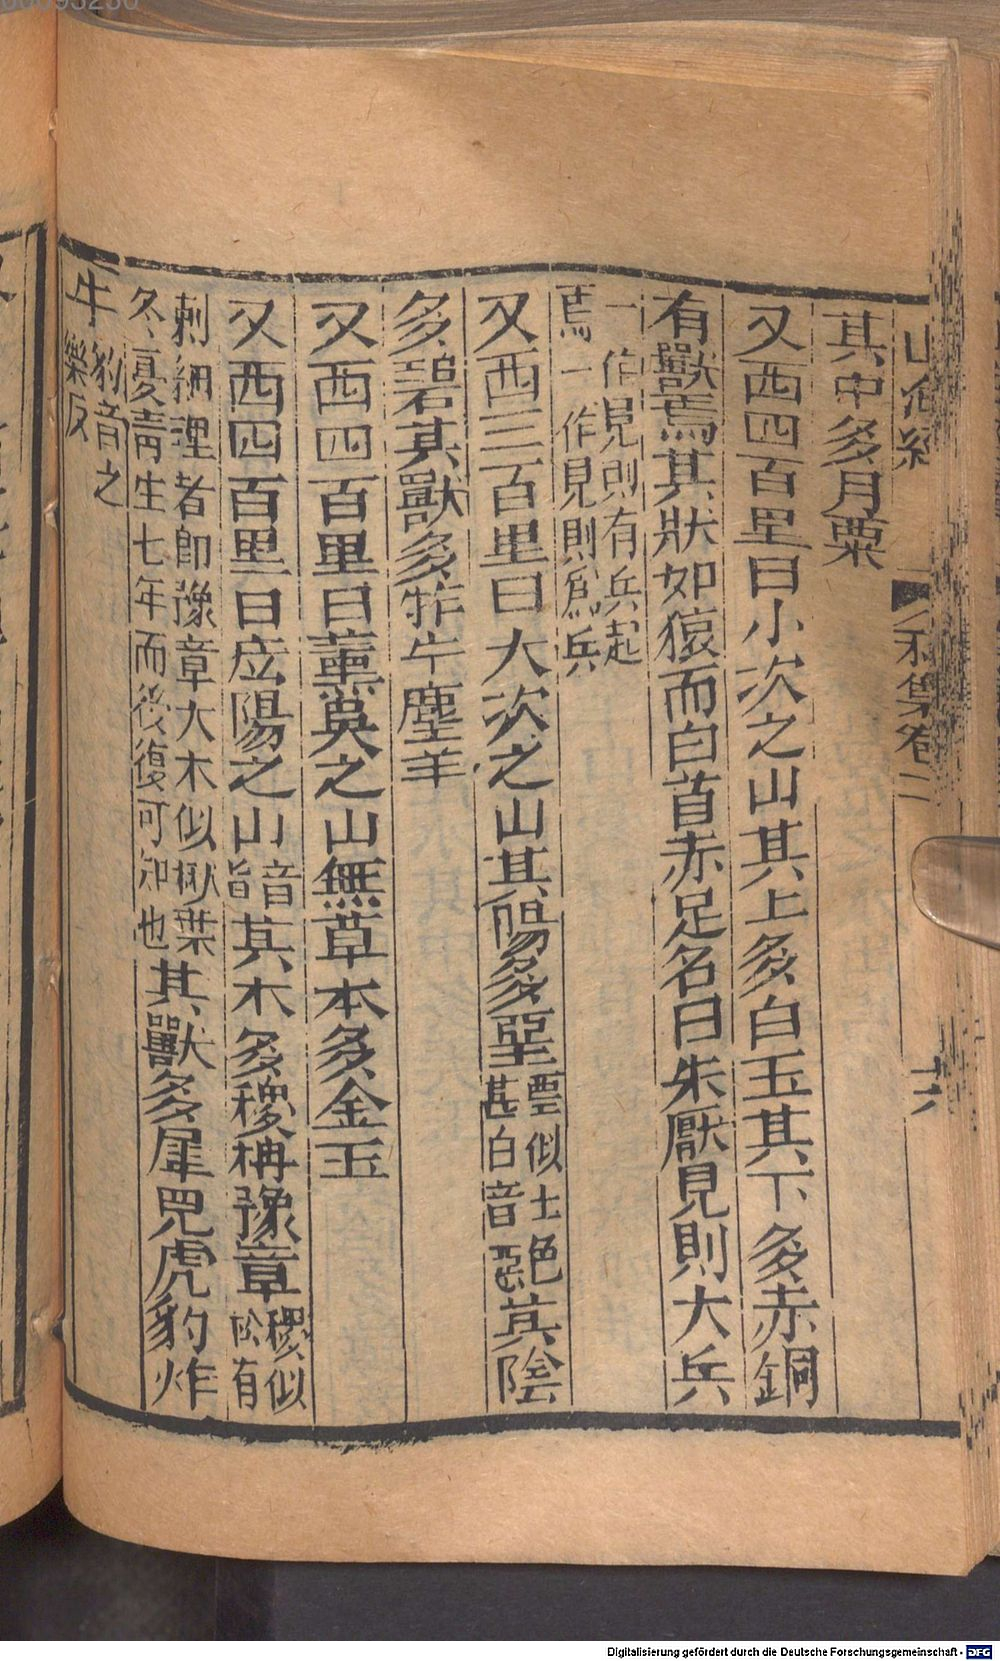 山海經 利集卷二 十六
其中多月粟
又西四百里曰小次之山其上多白玉其下多赤銅
有獸焉其狀如猿而白首赤足名曰朱厭見則大兵
一作見則有兵起
焉一作見則為兵
又西三百里曰大次之山其陽多堊堊似土色
甚白音惡其陰
多碧其獸多㸲牛麈羊
又西四百里曰薰吳之山無草本多金玉
又西四百里曰底陽之山音
旨其木多稷枏豫章稷似
松有
刺細理者即豫章大木似楸葉
冬夏青生七年而後復可知也其獸多犀兕虎豹炸
牛豹音之
樂反
Digitalisierung gefördert durch die Deutsche Forschungsgemeinschaft - DFG